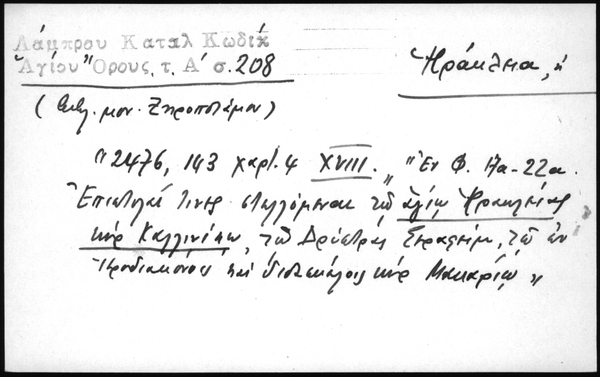 Λάμπρου Καταλ Κωδίκ
Ἁγίου Ὄρους, τ. Α΄ σ. 208
Ἡράκλεια, ἡ
μον. Ξηροποτάμου)
"2476, 143 χαρτ. 4 XVIII. "Ἐν Φ. 17α-22α.
Ἐπιστολαί τινες στελλόμεναι τῷ ἁγίῳ Ἡρακλείας
κὺρ Καλλινίκῳ, τῷ Δρύστρας Σεραφείμ, τῷ ἐν
Ἱεροδιακόνοις καὶ διδασκάλοις κὺρ Μακαρίῳ "